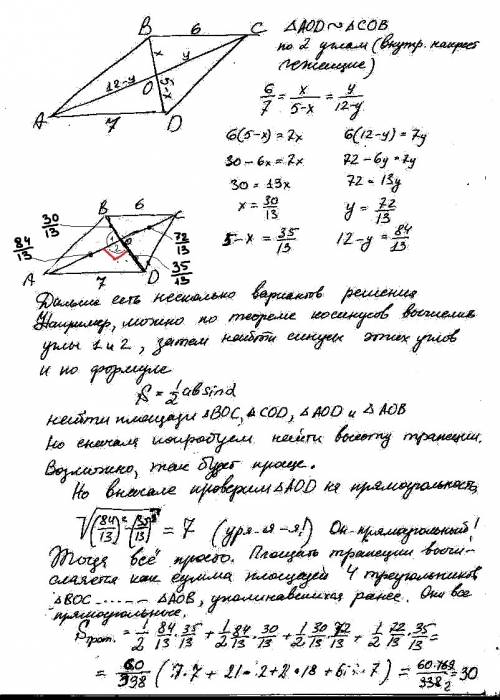 B 6 C
x y
12-y O 5-x
A 7 D
△AOD ~ △COB
по 2 углам (внутр. накрест
лежащие)
6/7 = x/(5-x) = y/(12-y)
6(5-x)=7x 6(12-y)=7y
30-6x=7x 72-6y=7y
30=13x 72=13y
x=30/13 y=72/13
5-x=35/13 12-y=84/13
B 6 C
30/13
84/13 1 2 72/13
35/13
A 7 D
Дальше есть несколько вариантов решения
Например, можно по теореме косинусов вычислить
углы 1 и 2, затем найти синусы этих углов
и по формуле
S=1/2 ab sin α
найти площади △BOC, △COD, △AOD и △AOB
Но сначала попробуем найти высоту трапеции.
Возможно, так будет проще.
Но вначале проверим △AOD на прямоугольность
√((84/13)²+(35/13)²) = 7 (ура-а-а!) Он-прямоугольный!
Тогда всё просто. Площадь трапеции вычи-
сляется как сумма площадей 4 треугольников
△BOC ...... △AOB, упоминавшихся ранее. Они все
прямоугольные.
Sтрап. = 1/2 84/13 · 35/13 + 1/2 84/13 · 30/13 + 1/2 30/13 · 72/13 + 1/2 72/13 · 35/13 =
= 60/338 (7·7+21·2+2·18+6·7) = 60·169/338 = 30